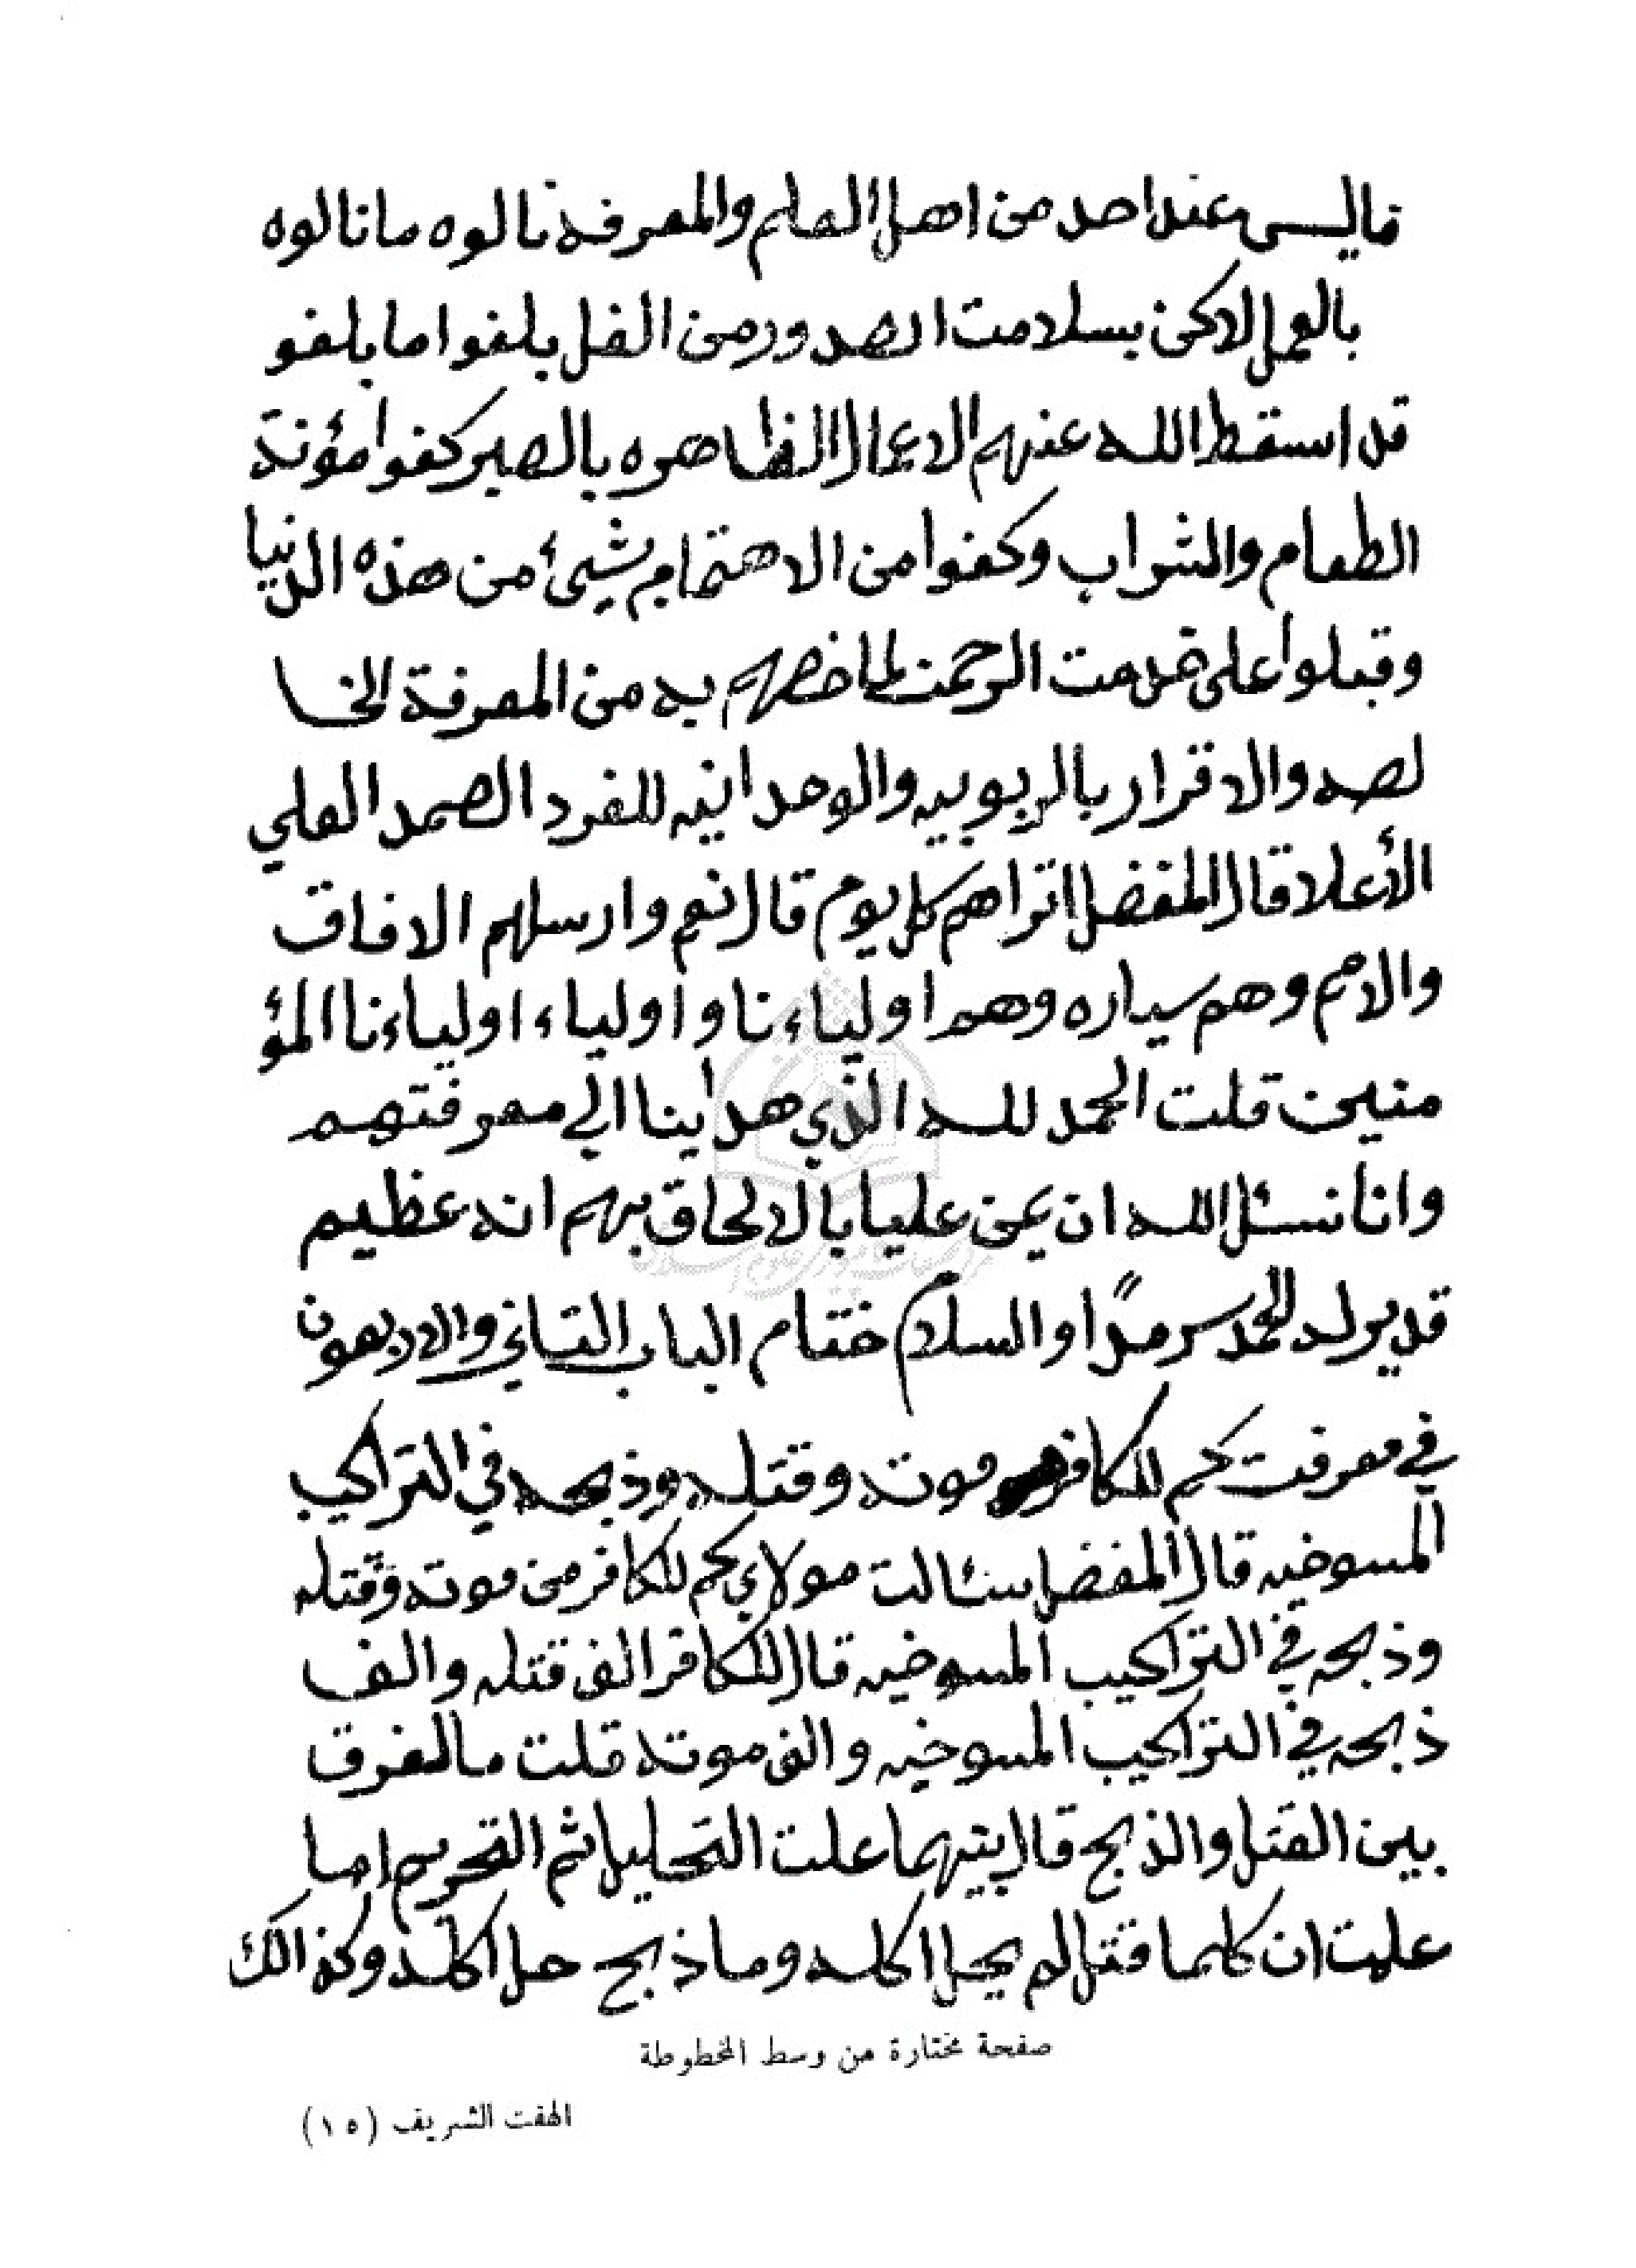 ماليس عند احد من اهل العلم والمعرفة نالوه مانالوه
بالعمل لاكن بسلامت الصدور من الغل بلغوا مابلغو
قد اسقط الله عنهم الاعمال الظاهره بالصبر كفوا مؤنة
الطعام والشراب وكفوا من الاهتمام بشيئ من هذه الدنيا
وقبلوا على خدمت الرحمن لما خصهم به من المعرفة الخا
لصه والاقرار بالربوبيه والوحدانيه للفرد الصمد العلي
الأعلا قال المفضل اتراهم كل يوم قال نعم وارسلهم الافاق
والامم وهم سياره وهم اولياءنا واولياء اولياءنا المؤ
منين قلت الحمد لله الذي هداينا الي معرفتهم
وانا نسئل الله ان يمن عليا بالالحاق بهم انه عظيم
قدير له الحمد سرمدًا والسلام ختام الباب التاني والاربعون
في معرفت كم للكافر موته وقتله وذبحه في التراكيب
المسوخيه قال المفضل سئالت مولاي كم للكافر من موته وقتله
وذبحه في التراكيب المسوخيه قال للكافر الف قتله والف
ذبحه في التراكيب المسوخيه والف موته قلت ما الفرق
بين القتل والذبح قال بينهما علت التحليل ثم التحريم اما
علمت ان كلما قتل لم يحل اكله وما ذبح حل اكله وكذالك
صفحة مختارة من وسط المخطوطة
الهفت الشريف (١٥)